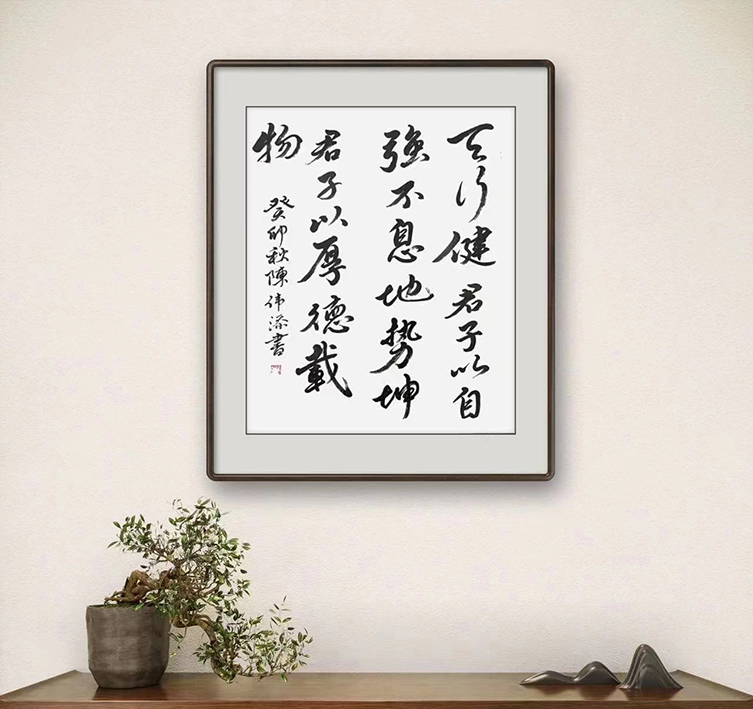 天行健君子以自
強不息地势坤
君子以厚德載
物
癸卯秋陳伟添書